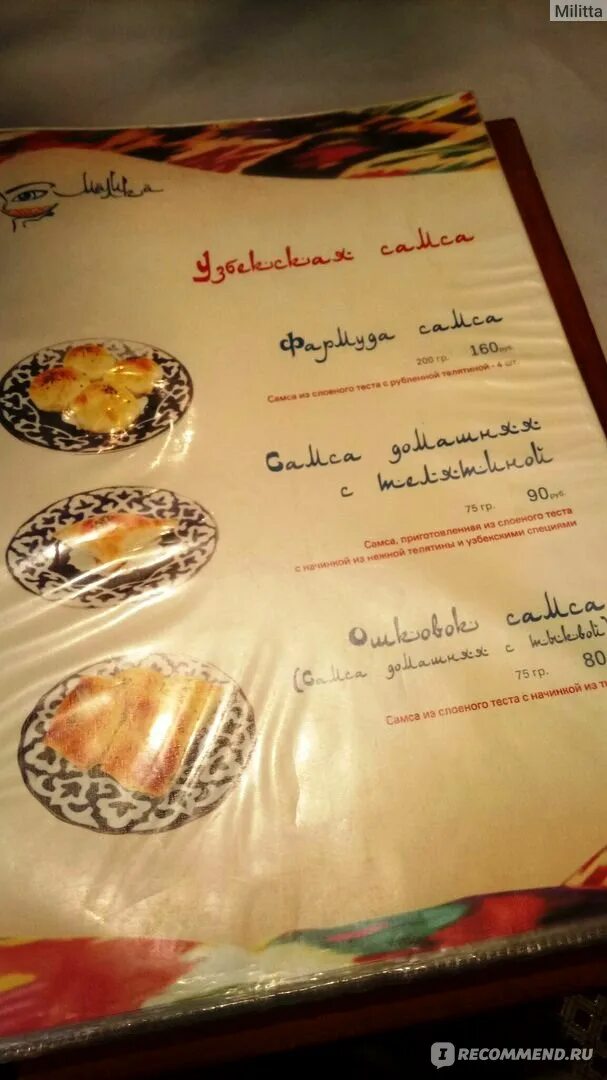 Militta
Малика
Узбекская самса
Фармуда самса
200 гр. 160 руб.
Самса из слоеного теста с рубленной телятиной - 4 шт.
Самса домашняя
с телятиной
75 гр. 90 руб.
Самса, приготовленная из слоеного теста
с начинкой из нежной телятины и узбекскими специями
Ошковок самса
(Самса домашняя с тыквой)
75 гр. 80
Самса из слоеного теста с начинкой из
I RECOMMEND.RU